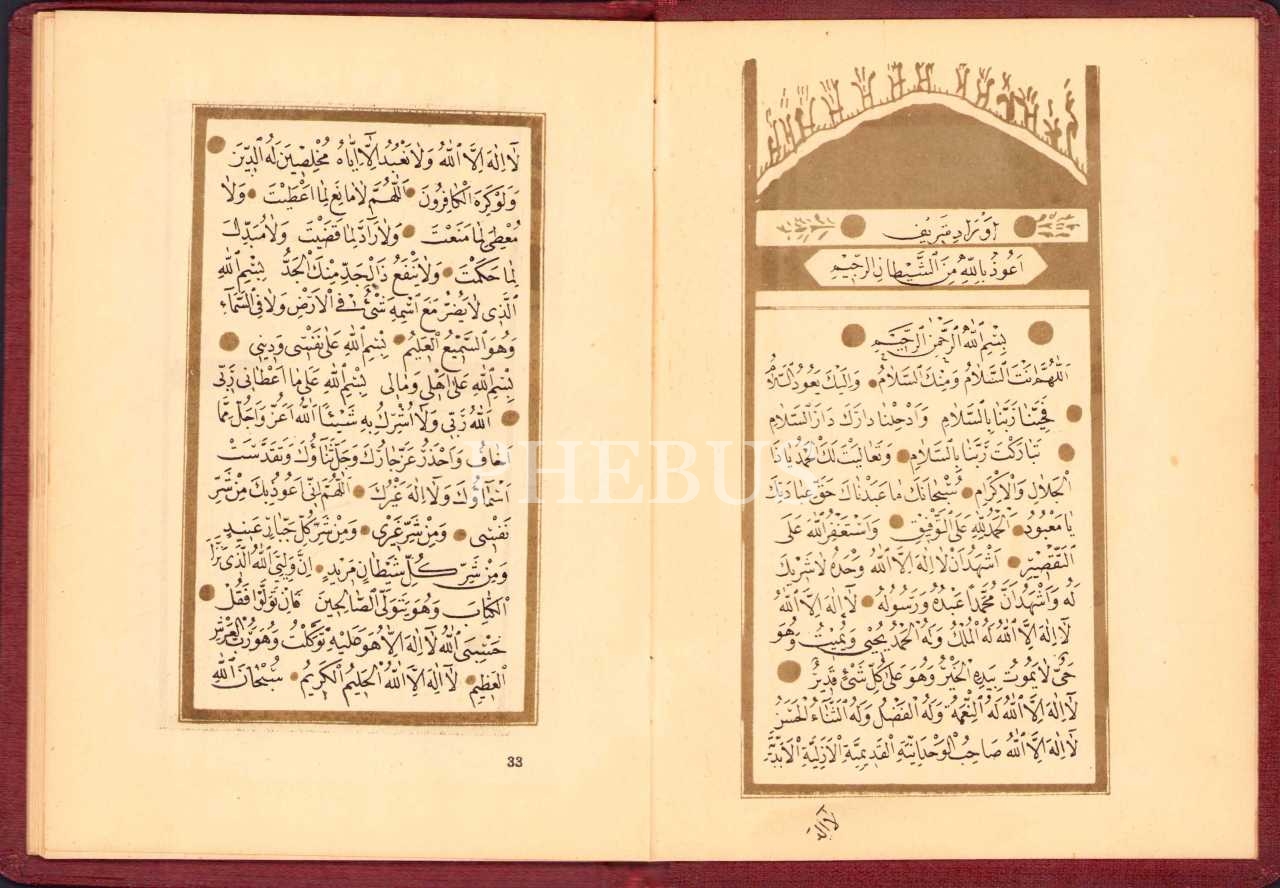 اوراد شريف
اَعُوذُ بِاللّٰهِ مِنَ الشَّيْطَانِ الرَّجِيمِ
بِسْمِ اللّٰهِ الرَّحْمٰنِ الرَّحِيمِ
اَللّٰهُمَّ اَنْتَ السَّلَامُ وَمِنْكَ السَّلَامُ وَاِلَيْكَ يَعُودُ السَّلَامُ
فَحَيِّنَا رَبَّنَا بِالسَّلَامِ وَاَدْخِلْنَا دَارَكَ دَارَ السَّلَامِ
تَبَارَكْتَ رَبَّنَا بِالسَّلَامِ وَتَعَالَيْتَ لَكَ الْحَمْدُ يَا ذَا
الْجَلَالِ وَالْاِكْرَامِ سُبْحَانَكَ مَا عَبَدْنَاكَ حَقَّ عِبَادَتِكَ
يَا مَعْبُودُ اَلْحَمْدُ لِلّٰهِ عَلَى التَّوْفِيقِ وَاَسْتَغْفِرُ اللّٰهَ عَلَى
التَّقْصِيرِ اَشْهَدُ اَنْ لَا اِلٰهَ اِلَّا اللّٰهُ وَحْدَهُ لَا شَرِيكَ
لَهُ وَاَشْهَدُ اَنَّ مُحَمَّدًا عَبْدُهُ وَرَسُولُهُ لَا اِلٰهَ اِلَّا اللّٰهُ
لَا اِلٰهَ اِلَّا اللّٰهُ لَهُ الْمُلْكُ وَلَهُ الْحَمْدُ يُحْيِى وَيُمِيتُ وَهُوَ
حَىٌّ لَا يَمُوتُ بِيَدِهِ الْخَيْرُ وَهُوَ عَلٰى كُلِّ شَىْءٍ قَدِيرٌ
لَا اِلٰهَ اِلَّا اللّٰهُ لَهُ النِّعْمَةُ وَلَهُ الْفَضْلُ وَلَهُ الثَّنَاءُ الْحَسَنُ
لَا اِلٰهَ اِلَّا اللّٰهُ صَاحِبُ الْوَحْدَانِيَّةِ الْقَدِيمِيَّةِ الْاَزَلِيَّةِ الْاَبَدِيَّةِ
لَا اِلٰهَ اِلَّا اللّٰهُ وَلَا نَعْبُدُ اِلَّا اِيَّاهُ مُخْلِصِينَ لَهُ الدِّينَ
وَلَوْ كَرِهَ الْكَافِرُونَ اَللّٰهُمَّ لَا مَانِعَ لِمَا اَعْطَيْتَ وَلَا
مُعْطِىَ لِمَا مَنَعْتَ وَلَا رَادَّ لِمَا قَضَيْتَ وَلَا مُبَدِّلَ
لِمَا حَكَمْتَ وَلَا يَنْفَعُ ذَا الْجَدِّ مِنْكَ الْجَدُّ بِسْمِ اللّٰهِ
الَّذِى لَا يَضُرُّ مَعَ اسْمِهِ شَىْءٌ فِى الْاَرْضِ وَلَا فِى السَّمَاءِ
وَهُوَ السَّمِيعُ الْعَلِيمُ بِسْمِ اللّٰهِ عَلٰى نَفْسِى وَدِينِى
بِسْمِ اللّٰهِ عَلٰى اَهْلِى وَمَالِى بِسْمِ اللّٰهِ عَلٰى مَا اَعْطَانِى رَبِّى
اَللّٰهُ رَبِّى وَلَا اُشْرِكُ بِهِ شَيْئًا اَللّٰهُ اَعَزُّ وَاَجَلُّ مِمَّا
اَخَافُ وَاَحْذَرُ عَزَّ جَارُكَ وَجَلَّ ثَنَاؤُكَ وَتَقَدَّسَتْ
اَسْمَاؤُكَ وَلَا اِلٰهَ غَيْرُكَ اَللّٰهُمَّ اِنِّى اَعُوذُ بِكَ مِنْ شَرِّ
نَفْسِى وَمِنْ شَرِّ غَيْرِى وَمِنْ شَرِّ كُلِّ جَبَّارٍ عَنِيدٍ
وَمِنْ شَرِّ كُلِّ شَيْطَانٍ مَرِيدٍ اِنَّ وَلِيِّىَ اللّٰهُ الَّذِى نَزَّلَ
الْكِتَابَ وَهُوَ يَتَوَلَّى الصَّالِحِينَ فَاِنْ تَوَلَّوْا فَقُلْ
حَسْبِىَ اللّٰهُ لَا اِلٰهَ اِلَّا هُوَ عَلَيْهِ تَوَكَّلْتُ وَهُوَ رَبُّ الْعَرْشِ
الْعَظِيمِ لَا اِلٰهَ اِلَّا اللّٰهُ الْحَلِيمُ الْكَرِيمُ سُبْحَانَ اللّٰهِ
33
PHEBUS